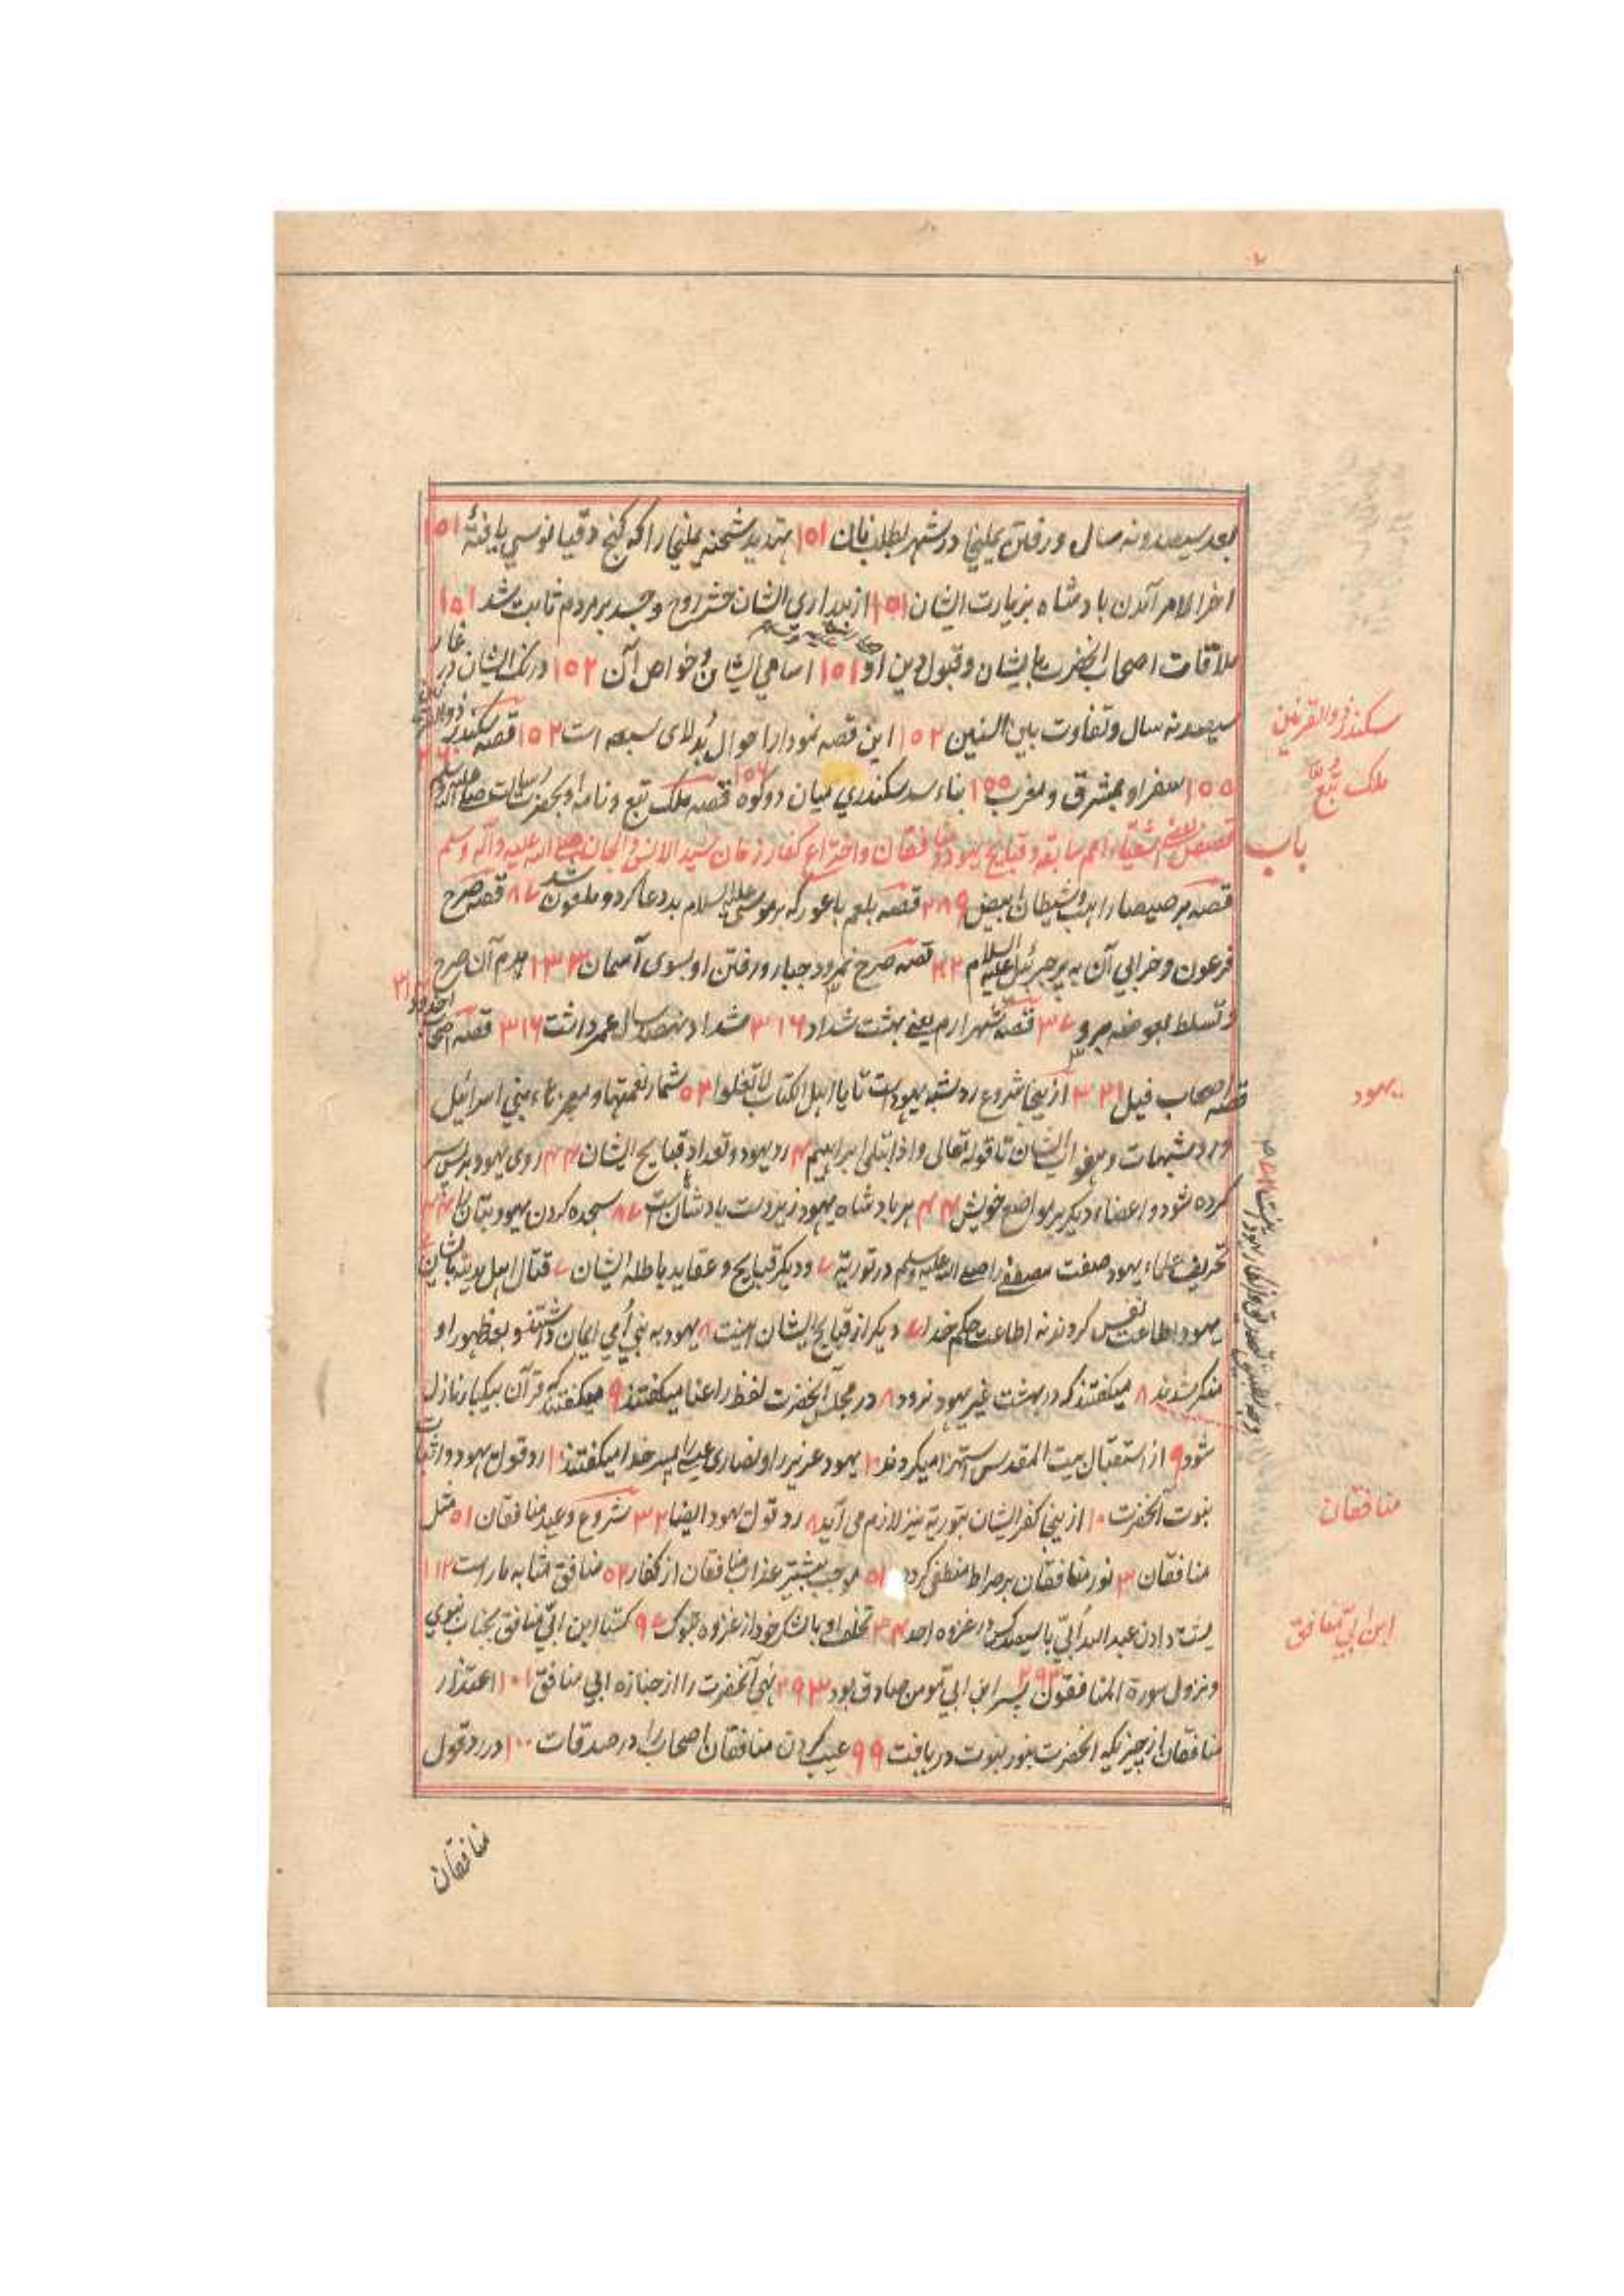 بعد سیصد و نه سال و رفتن یملیخا در شهر بطلب نان ۱۵۱ تهدید شحنه یملیخا را که گنج دقیانوسی یافته ۱۵۱
اخر الامر آمدن بادشاه بزیارت ایشان ۱۵۱ از بیداری ایشان حشر روح و جسد بر مردم ثابت شد ۱۵۱
ملاقات اصحاب آنحضرت بایشان و قبول دین او ۱۵۱ اسامی ایشان و خواص آن ۱۵۲ درنگ ایشان در غار
سیصد نه سال و تفاوت بین السنین ۱۵۲ این قصه نمودار احوال بدلای سبعه است ۱۵۲ قصه سکندر ذو القرنین
سکندر ذو القرنین
۱۵۵ سفر او بمشرق و مغرب ۱۵۵ بناء سد سکندری میان دو کوه ۱۵۶ قصه ملک تبع و نامه او بحضرت رسالت صلی الله علیه وسلم
ملک تبع
باب
قصص بعض اشقیاء امم سابقه و قبایح یهود و منافقان و اختراع کفار زمان سید الانس و الجان صلی الله علیه وآله وسلم
قصه برصیصا راهب و شیطان ابیض ۲۸۹ قصه بلعم باعور که بر موسی علیه السلام بد دعا کرد و ملعون شد ۸۷ قصه صرح
فرعون و خرابی آن به پر جبرئیل علیه السلام قصه صرح نمرود جبار و رفتن او بسوی آسمان ۱۳۳ هدم آن صرح
و تسلط بعوضه برو قصه شهر ارم یعنی بهشت شداد ۳۱۶ شداد نهصد سال عمر داشت ۳۱۶ قصه اصحاب اخدود
قصه اصحاب فیل ۳۲۱ از ینجا شروع رد شبه یهود است تا یا اهل الکتاب لا تغلوا ۵۲ شمار نعمتها و معجزهاء بنی اسرائیل
یهود
و رد شبهات ایشان تا قوله تعالی و اذ ابتلی ابراهیم ۴ رد یهود و تعداد قبایح ایشان ۴۴ روی یهود بر پس سر
کرده شود و اعضاء دیگر بر مواضع خویش ۴۴ هر بادشاه یهود زیردست بادشاهان است ۸۷ سجده کردن یهود بتان را
تحریف علماء یهود صفت مصطفی را صلی الله علیه وسلم در توریة ۷ و دیگر قبایح و عقاید باطله ایشان ۷ قتال اهل مدینه با مشرکین
یهود اطاعت نفس کردند نه اطاعت حکم خدا ۷ دیگر از قبایح ایشان اینست ۸ یهود به نبی امی ایمان داشتند و بعد ظهور او
منکر شدند ۸ میگفتند که در بهشت غیر یهود نرود ۸ در مجلس آنحضرت لفظ راعنا میگفتند ۹ میگفتند که قرآن بیکبار نازل
شود ۹ از استقبال بیت المقدس استهزا میکردند ۱۰ یهود عزیر را و نصاری عیسی را پسر خدا میگفتند ۱۰ رد قول یهود و اثبات
بنوت آنحضرت ۱۰ از ینجا کفر ایشان بتوریة نیز لازم می آید ۸ رد قول یهود ایضا ۳۲ شروع وعید منافقان ۵۱ مثل
منافقان
منافقان ۳ نور منافقان بر صراط منطفی گردد ۵۱ موجب بیشتر عذاب منافقان از کفار ۵۲ منافق مشابه مار است ۱۱۲
پشت دادن عبد الله ابی با سیصد کس در غزوه احد ۳۴ تخلف او با لشکر خود از غزوه تبوک ۹۵ گستاخ ابن ابی منافق بجناب نبوی
ابن ابی منافق
و نزول سورة المنافقون ۲۹۳ پسر ابن ابی مومن صادق بود ۲۹۳ نهی آنحضرت را از جنازه ابی منافق ۱۰۱ اعتذار
منافقان از چیزیکه آنحضرت بنور نبوت دریافت ۹۹ عیب کردن منافقان اصحاب را در صدقات ۱۰۰ در رد قول
منافقان